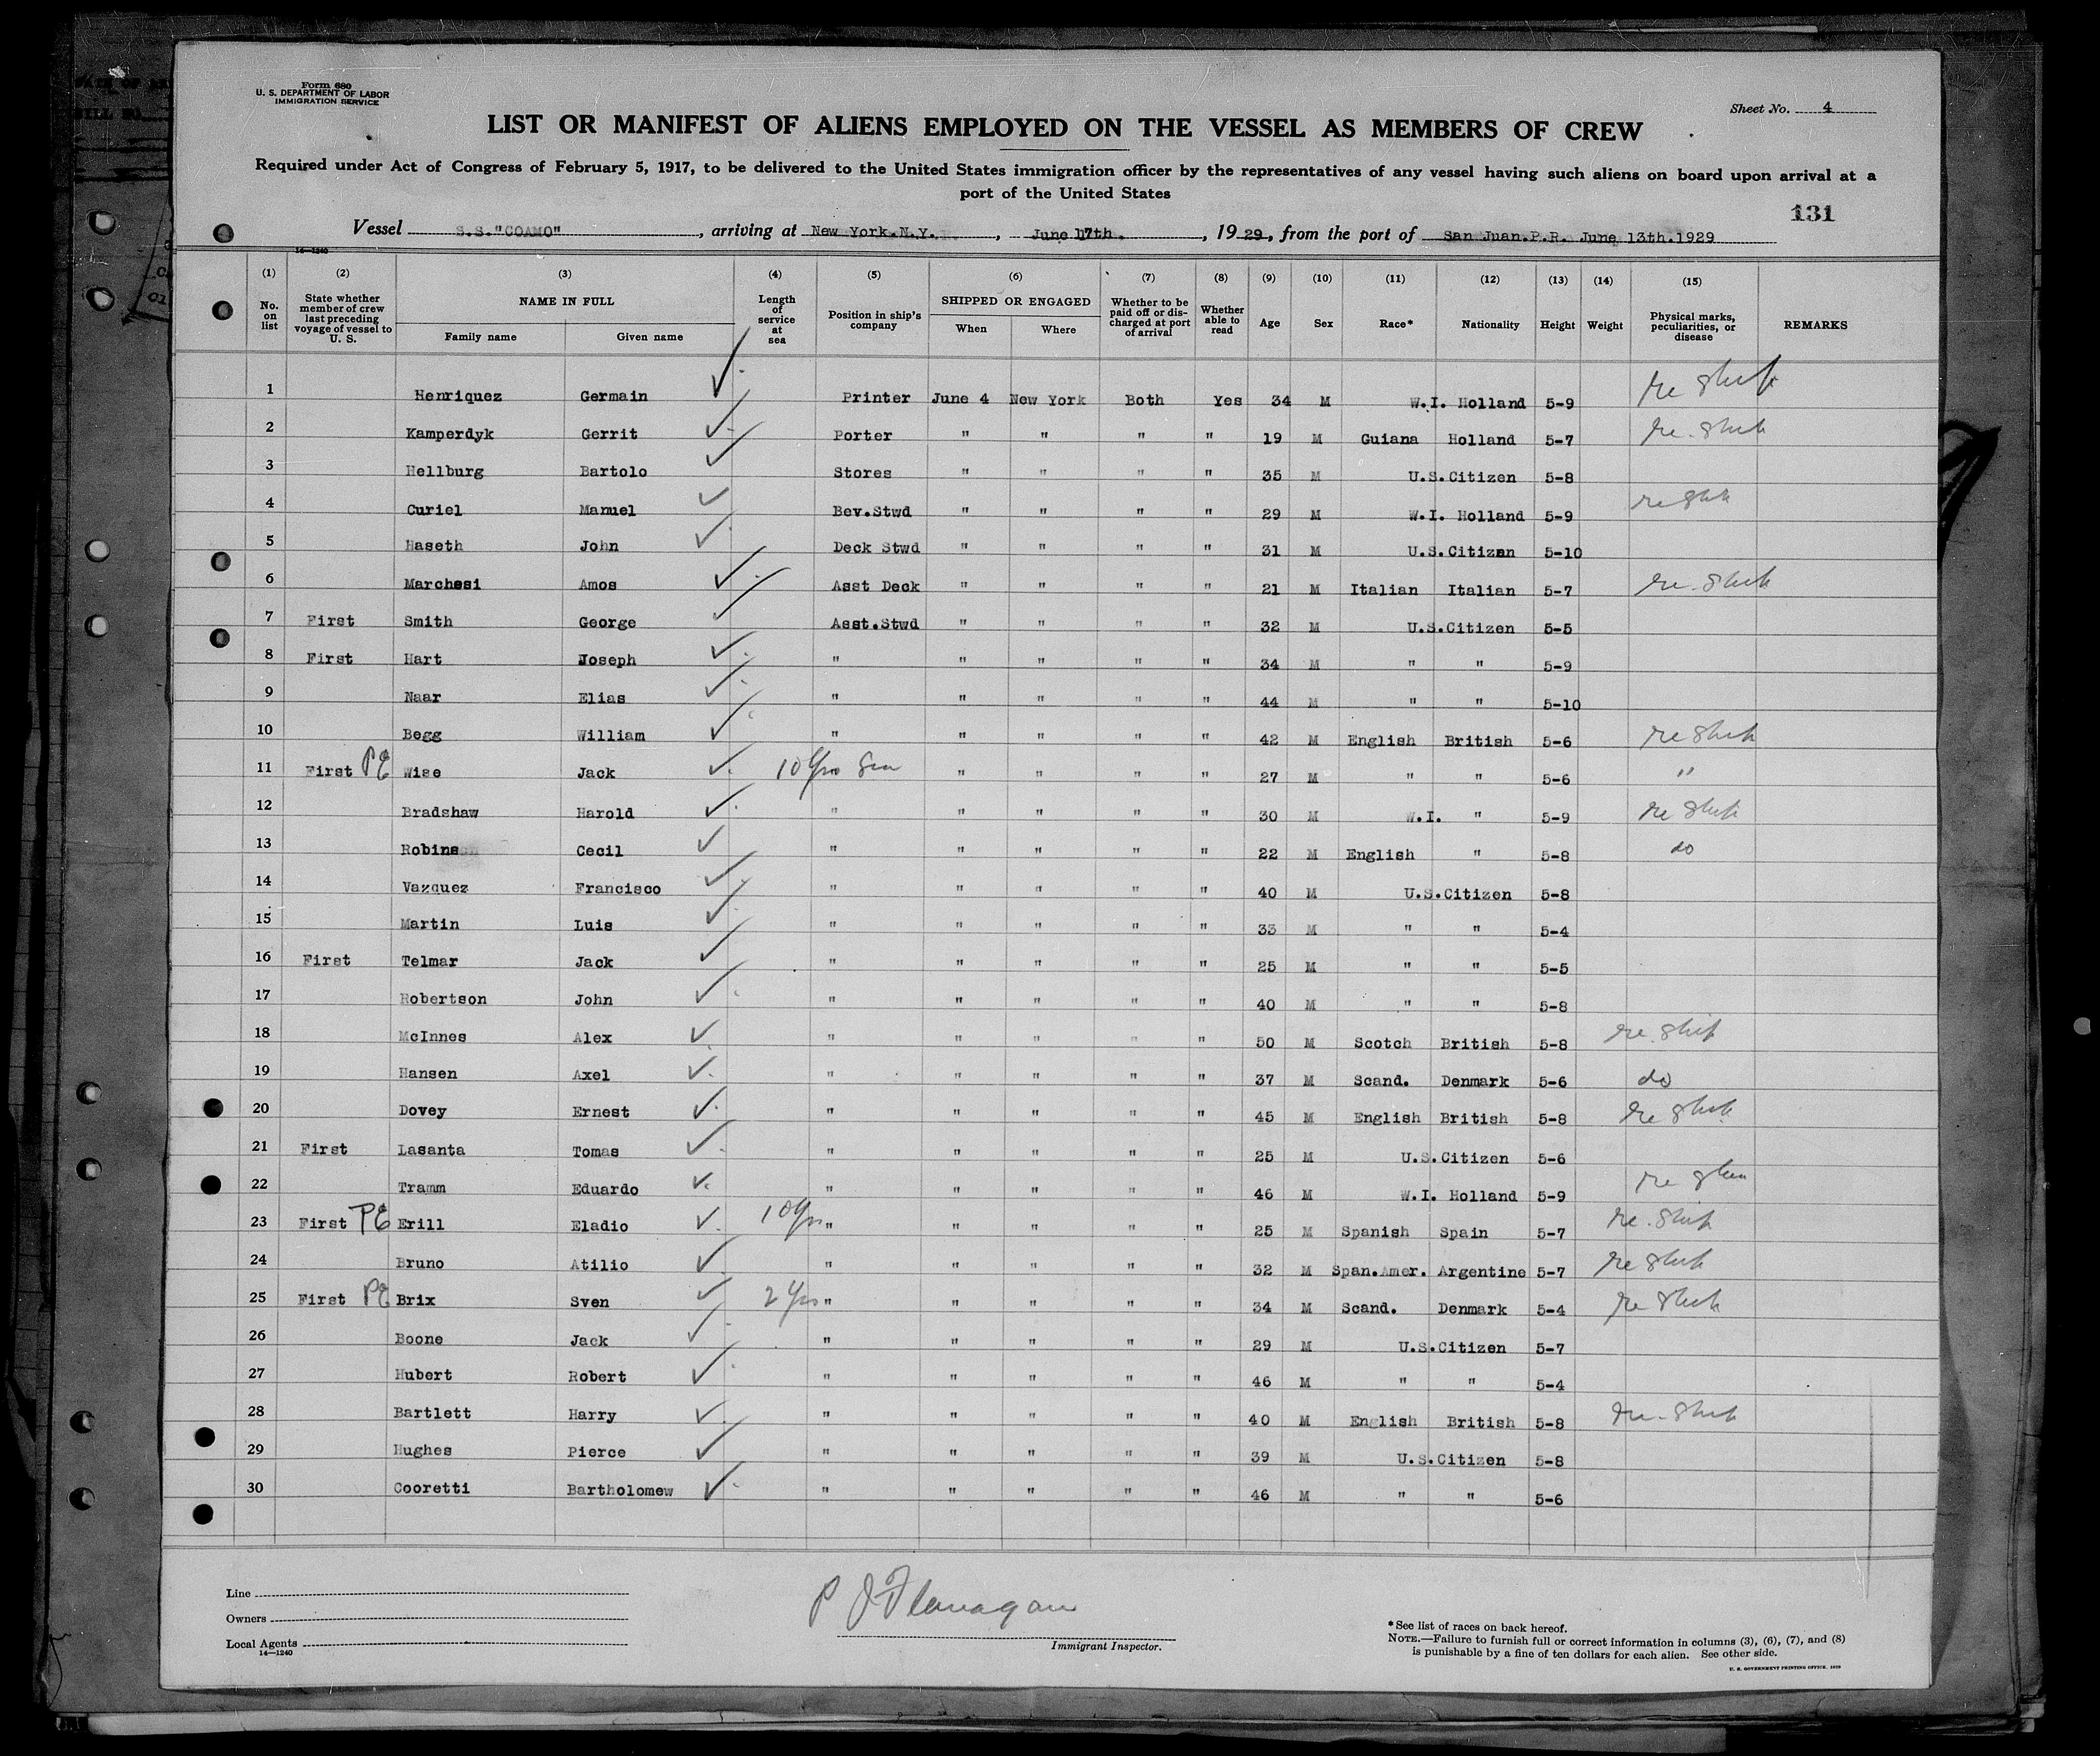 Form 680
U. S. DEPARTMENT OF LABOR
IMMIGRATION SERVICE
Sheet No. 4
LIST OR MANIFEST OF ALIENS EMPLOYED ON THE VESSEL AS MEMBERS OF CREW
Required under Act of Congress of February 5, 1917, to be delivered to the United States immigration officer by the representatives of any vessel having such aliens on board upon arrival at a
port of the United States
131
Vessel S.S."COAMO", arriving at New York.N.Y., June 17th., 1929, from the port of San Juan.P.R. June 13th.1929
14—1240
(1) (2) (3) (4) (5) (6) (7) (8) (9) (10) (11) (12) (13) (14) (15)
No. on list State whether member of crew last preceding voyage of vessel to U. S. NAME IN FULL Family name Given name Length of service at sea Position in ship's company SHIPPED OR ENGAGED When Where Whether to be paid off or discharged at port of arrival Whether able to read Age Sex Race* Nationality Height Weight Physical marks, peculiarities, or disease REMARKS
1 Henriquez Germain ✓ Printer June 4 New York Both Yes 34 M W.I. Holland 5-9 re ship
2 Kamperdyk Gerrit ✓ Porter " " " " 19 M Guiana Holland 5-7 re-ship
3 Hellburg Bartolo ✓ Stores " " " " 35 M U.S.Citizen 5-8
4 Curiel Manuel ✓ Bev.Stwd " " " " 29 M W.I. Holland 5-9 re ship
5 Haseth John ✓ Deck Stwd " " " " 31 M U.S.Citizen 5-10
6 Marchesi Amos ✓ Asst Deck " " " " 21 M Italian Italian 5-7 re-ship
7 First Smith George ✓ Asst.Stwd " " " " 32 M U.S.Citizen 5-5
8 First Hart Joseph ✓ " " " " " 34 M " " 5-9
9 Naar Elias ✓ " " " " " 44 M " " 5-10
10 Begg William ✓ " " " " " 42 M English British 5-6 re ship
11 First PE Wise Jack ✓ 10 yrs " " " " 27 M " " 5-6 "
12 Bradshaw Harold ✓ " " " " " 30 M W.I. " 5-9 re ship
13 Robins Cecil ✓ " " " " " 22 M English " 5-8 do
14 Vazquez Francisco ✓ " " " " " 40 M U.S.Citizen 5-8
15 Martin Luis ✓ " " " " " 33 M " " 5-4
16 First Telmar Jack ✓ " " " " " 25 M " " 5-5
17 Robertson John ✓ " " " " " 40 M " " 5-8
18 McInnes Alex ✓ " " " " " 50 M Scotch British 5-8 re ship
19 Hansen Axel ✓ " " " " " 37 M Scand. Denmark 5-6 do
20 Dovey Ernest ✓ " " " " " 45 M English British 5-8 re ship
21 First Lasanta Tomas ✓ " " " " " 25 M U.S.Citizen 5-6
22 Tramm Eduardo ✓ " " " " " 46 M W.I. Holland 5-9 re ship
23 First PE Erill Eladio ✓ 10 yrs " " " " " 25 M Spanish Spain 5-7 re-ship
24 Bruno Atilio ✓ " " " " " 32 M Span.Amer. Argentine 5-7 re ship
25 First PE Brix Sven ✓ 2 yrs " " " " " 34 M Scand. Denmark 5-4 re ship
26 Boone Jack ✓ " " " " " 29 M U.S.Citizen 5-7
27 Hubert Robert ✓ " " " " " 46 M " " 5-4
28 Bartlett Harry ✓ " " " " " 40 M English British 5-8 re-ship
29 Hughes Pierce ✓ " " " " " 39 M U.S.Citizen 5-8
30 Cooretti Bartholomew ✓ " " " " " 46 M " " 5-6
Line
Owners
Local Agents
14—1240
P J Flanagan
Immigrant Inspector.
*See list of races on back hereof.
NOTE.—Failure to furnish full or correct information in columns (3), (6), (7), and (8)
is punishable by a fine of ten dollars for each alien. See other side.
U. S. GOVERNMENT PRINTING OFFICE. 1929